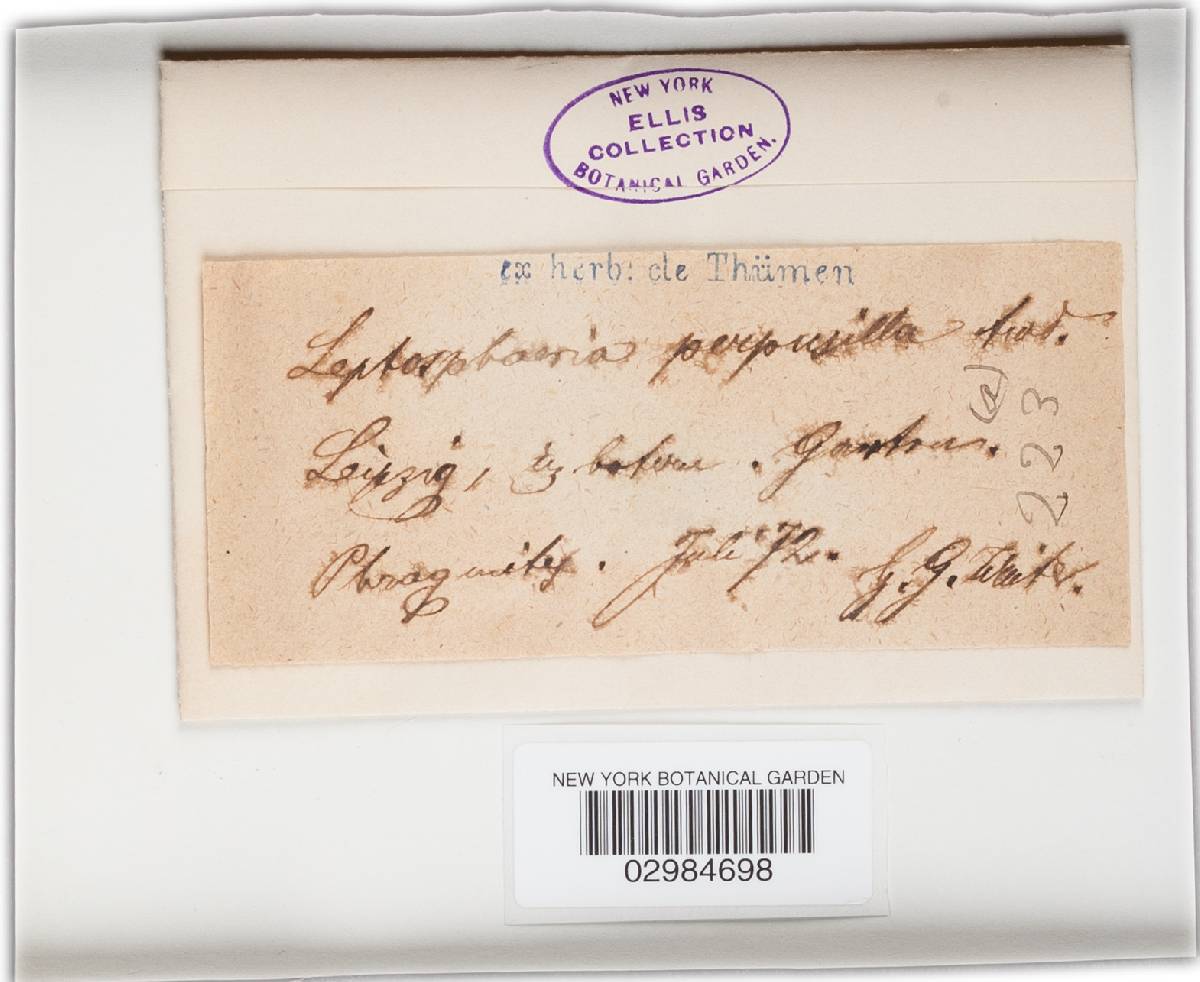 NEW YORK
ELLIS
COLLECTION
BOTANICAL GARDEN.
ex herb: de Thümen
Leptosphaeria perpusilla Awd.
Leipzig, botan. Garten.
Phragmites. Juli 72. G. Winter.
223
(a)
NEW YORK BOTANICAL GARDEN
02984698